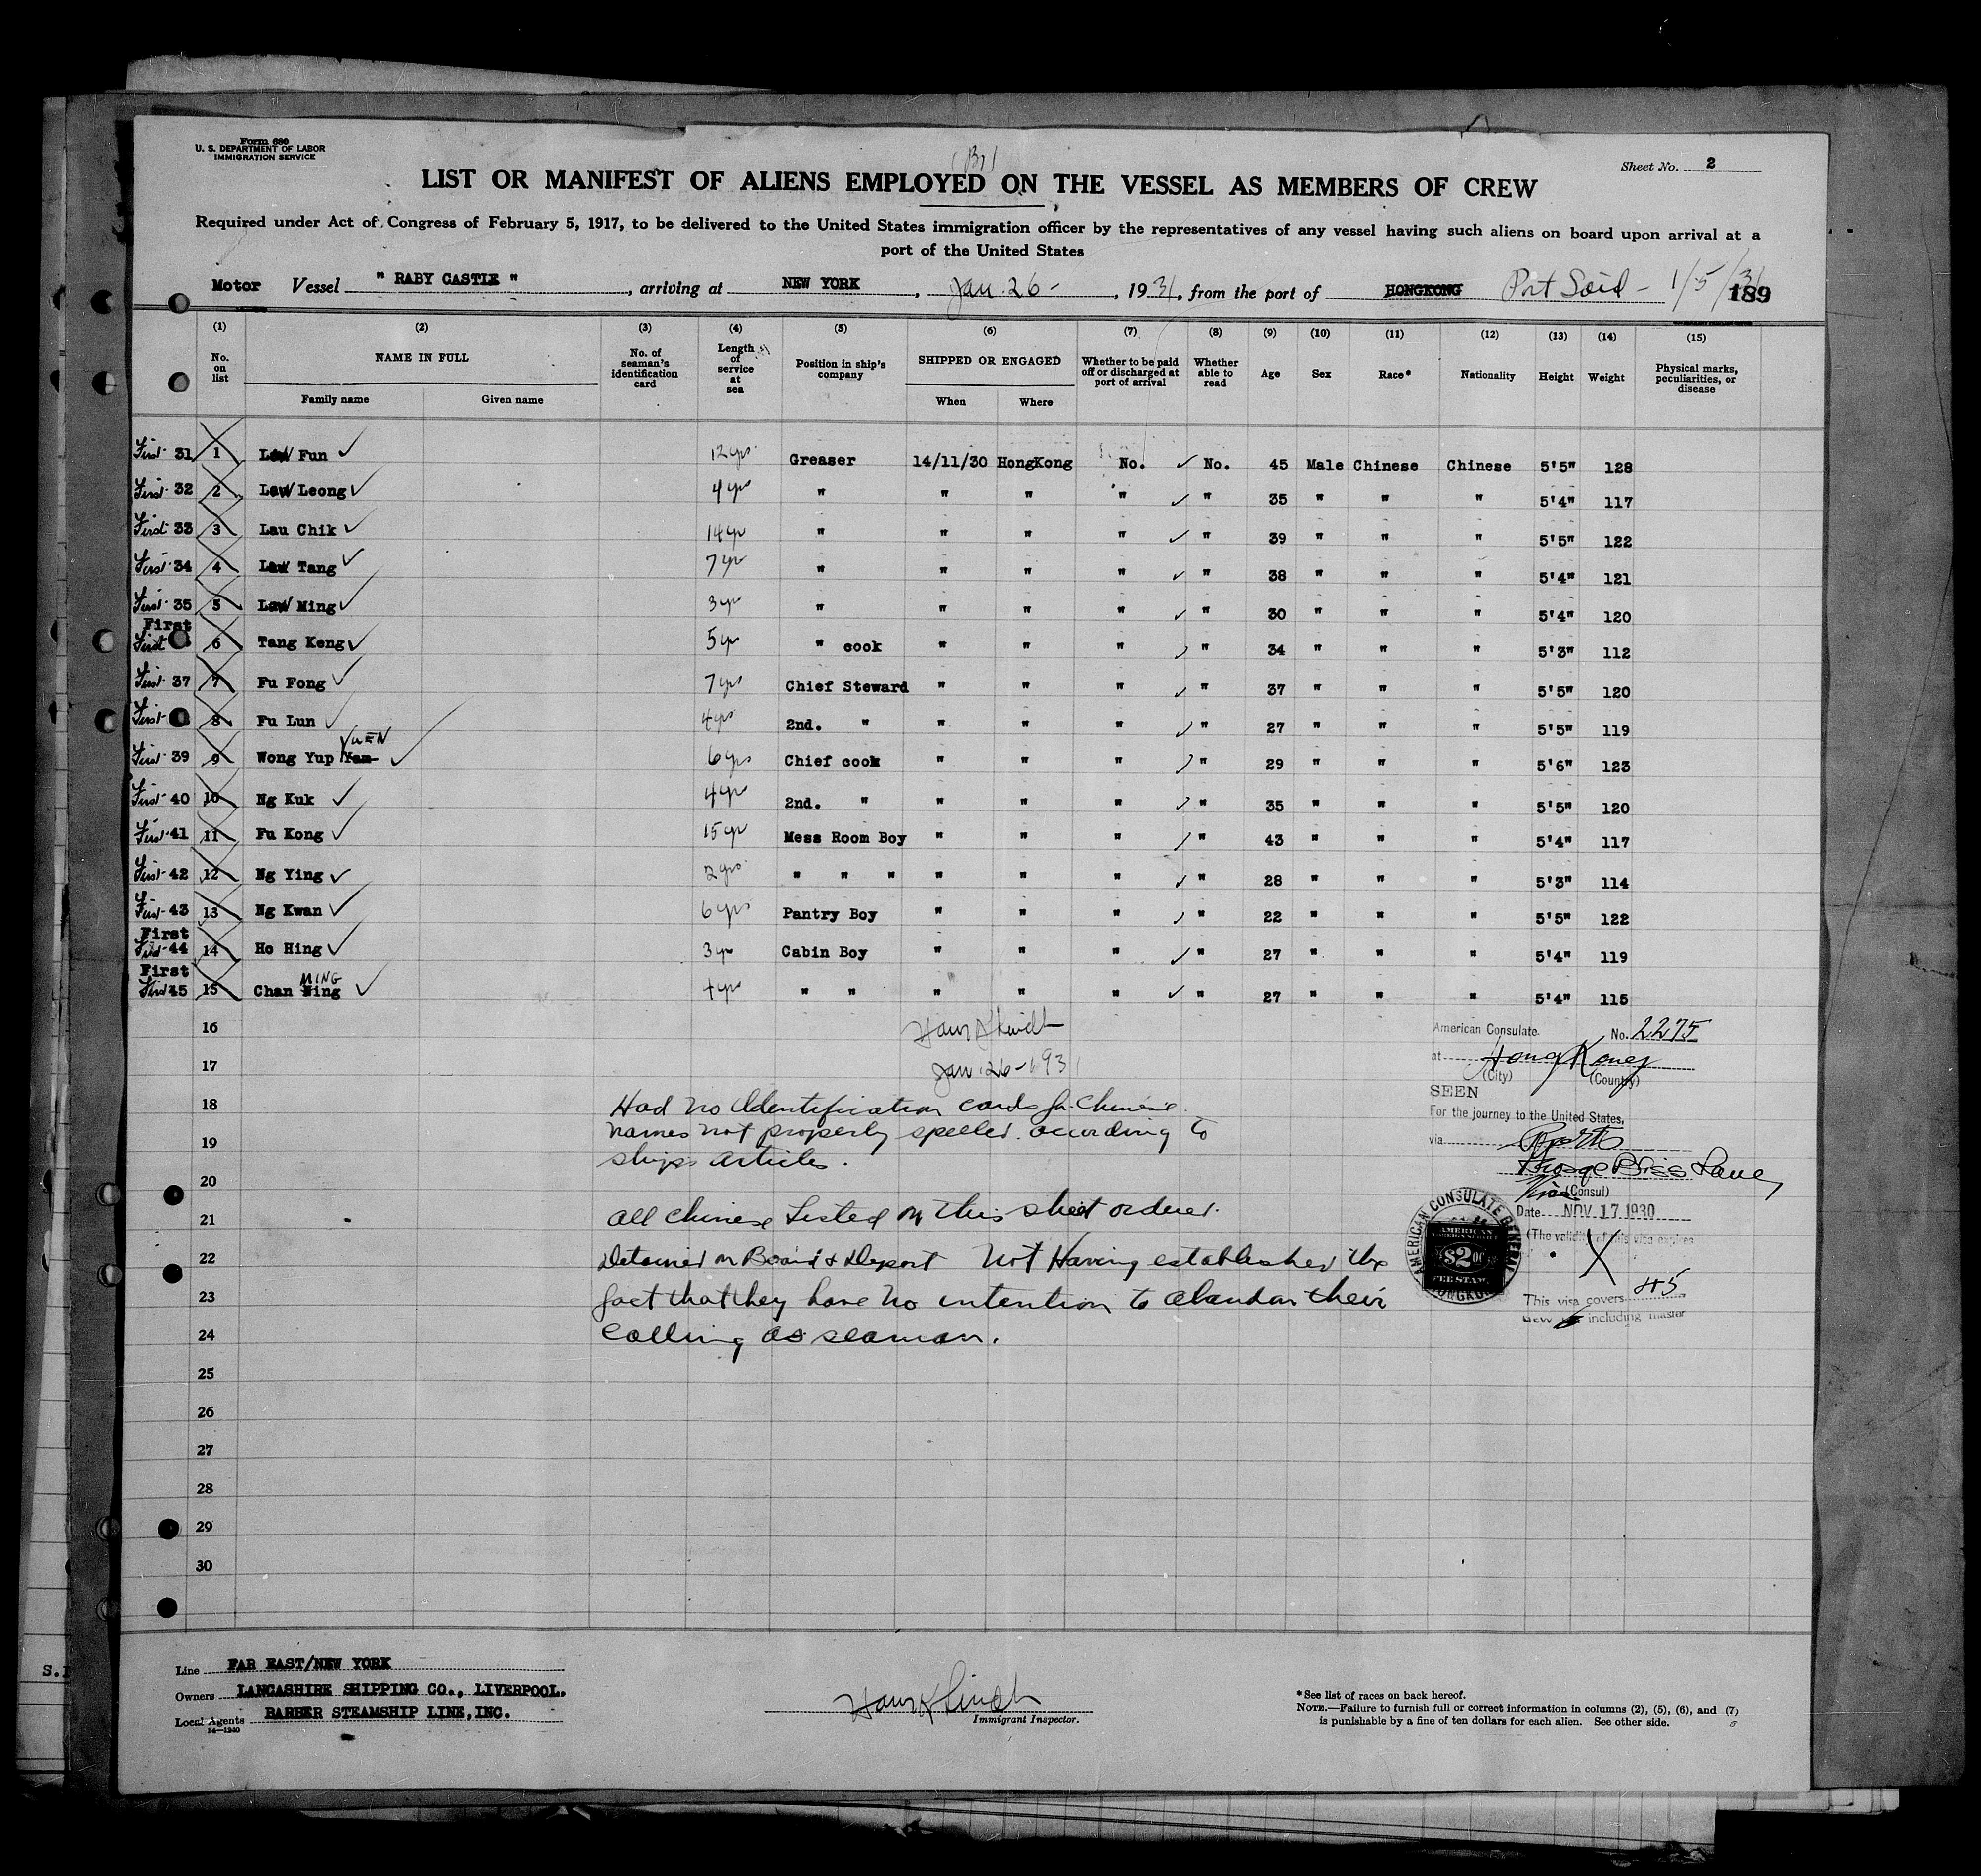 Form 680
U. S. DEPARTMENT OF LABOR
IMMIGRATION SERVICE
(Br)
Sheet No. 2
LIST OR MANIFEST OF ALIENS EMPLOYED ON THE VESSEL AS MEMBERS OF CREW
Required under Act of Congress of February 5, 1917, to be delivered to the United States immigration officer by the representatives of any vessel having such aliens on board upon arrival at a
port of the United States
Motor Vessel " RABY CASTLE ", arriving at NEW YORK, Jan. 26 -, 1931, from the port of HONGKONG Port Said - 1/5/31
189
(1) (2) (3) (4) (5) (6) (7) (8) (9) (10) (11) (12) (13) (14) (15)
No. on list NAME IN FULL No. of seaman's identification card Length of service at sea Position in ship's company SHIPPED OR ENGAGED Whether to be paid off or discharged at port of arrival Whether able to read Age Sex Race* Nationality Height Weight Physical marks, peculiarities, or disease
Family name Given name When Where
First 31 1 Law Fun 12 yrs Greaser 14/11/30 HongKong No. No. 45 Male Chinese Chinese 5'5" 128
First 32 2 Law Leong 4 yrs " " " " " 35 " " " 5'4" 117
First 33 3 Lau Chik 14 yr " " " " " 39 " " " 5'5" 122
First 34 4 Law Tang 7 yr " " " " " 38 " " " 5'4" 121
First 35 5 Law Ming 3 yr " " " " " 30 " " " 5'4" 120
First
First 6 Tang Keng 5 yr " cook " " " " 34 " " " 5'3" 112
First 37 7 Fu Fong 7 yrs Chief Steward " " " " 37 " " " 5'5" 120
First 8 Fu Lun 4 yrs 2nd. " " " " " 27 " " " 5'5" 119
YUEN
First 39 9 Wong Yup Yam 6 yrs Chief cook " " " " 29 " " " 5'6" 123
First 40 10 Ng Kuk 4 yr 2nd. " " " " " 35 " " " 5'5" 120
First 41 11 Fu Kong 15 yr Mess Room Boy " " " " 43 " " " 5'4" 117
First 42 12 Ng Ying 2 yrs " " " " " " " 28 " " " 5'3" 114
First 43 13 Ng Kwan 6 yrs Pantry Boy " " " " 22 " " " 5'5" 122
First
First 44 14 Ho Hing 3 yr Cabin Boy " " " " 27 " " " 5'4" 119
First MING
First 45 15 Chan Ning 4 yrs " " " " " " 27 " " " 5'4" 115
16
17 Jan. 26 - 1931
18 Had no Identification cards for Chinese.
19 names not properly spelled according to
ships articles.
20
21 All Chinese Listed on this sheet ordered
22 Detained on Board & Deport Not Having established the
23 fact that they have no intention to abandon their
24 calling as seaman.
25
26
27
28
29
30
American Consulate No. 2275
at Hong Kong
(City) (Country)
SEEN
For the journey to the United States,
via
Vice (Consul)
Date NOV 17 1930
(The validity of this visa expires
This visa covers 45
crew including master
AMERICAN CONSULATE GENERAL
HONGKONG
AMERICAN
FOREIGN SERVICE
$2.00
FEE STAMP
Line FAR EAST/NEW YORK
Owners LANCASHIRE SHIPPING CO., LIVERPOOL.
Local Agents BARBER STEAMSHIP LINE,INC.
14—1240
Immigrant Inspector.
*See list of races on back hereof.
NOTE.—Failure to furnish full or correct information in columns (2), (5), (6), and (7)
is punishable by a fine of ten dollars for each alien. See other side.